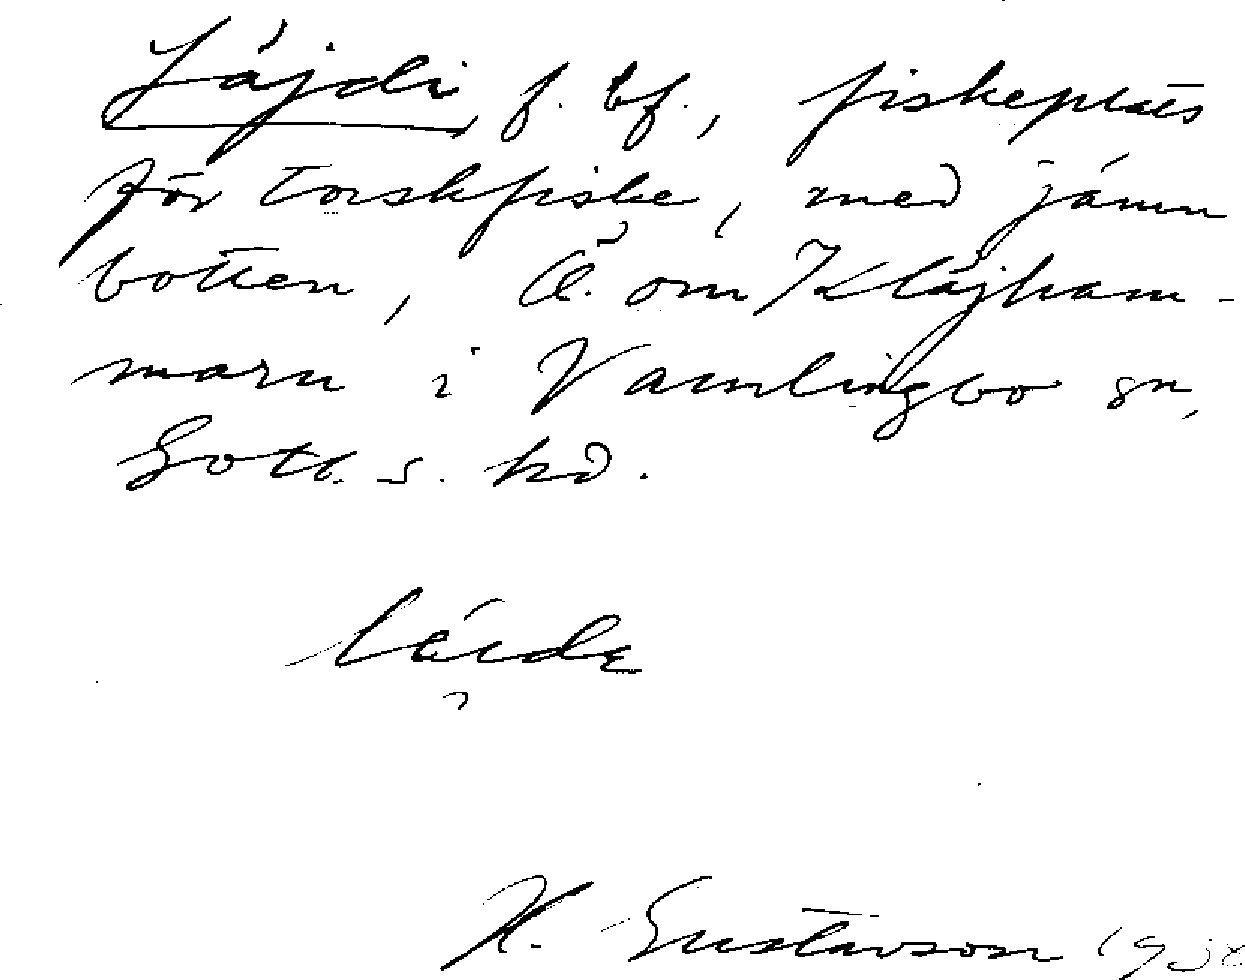 Lájdi f. bf., fiskeplats
för torskfiske, med jämn
botten, Ö. om Klájham-
marn i Vamlingbo sn,
Gotl. s. hd.
H. Gustavson 1938